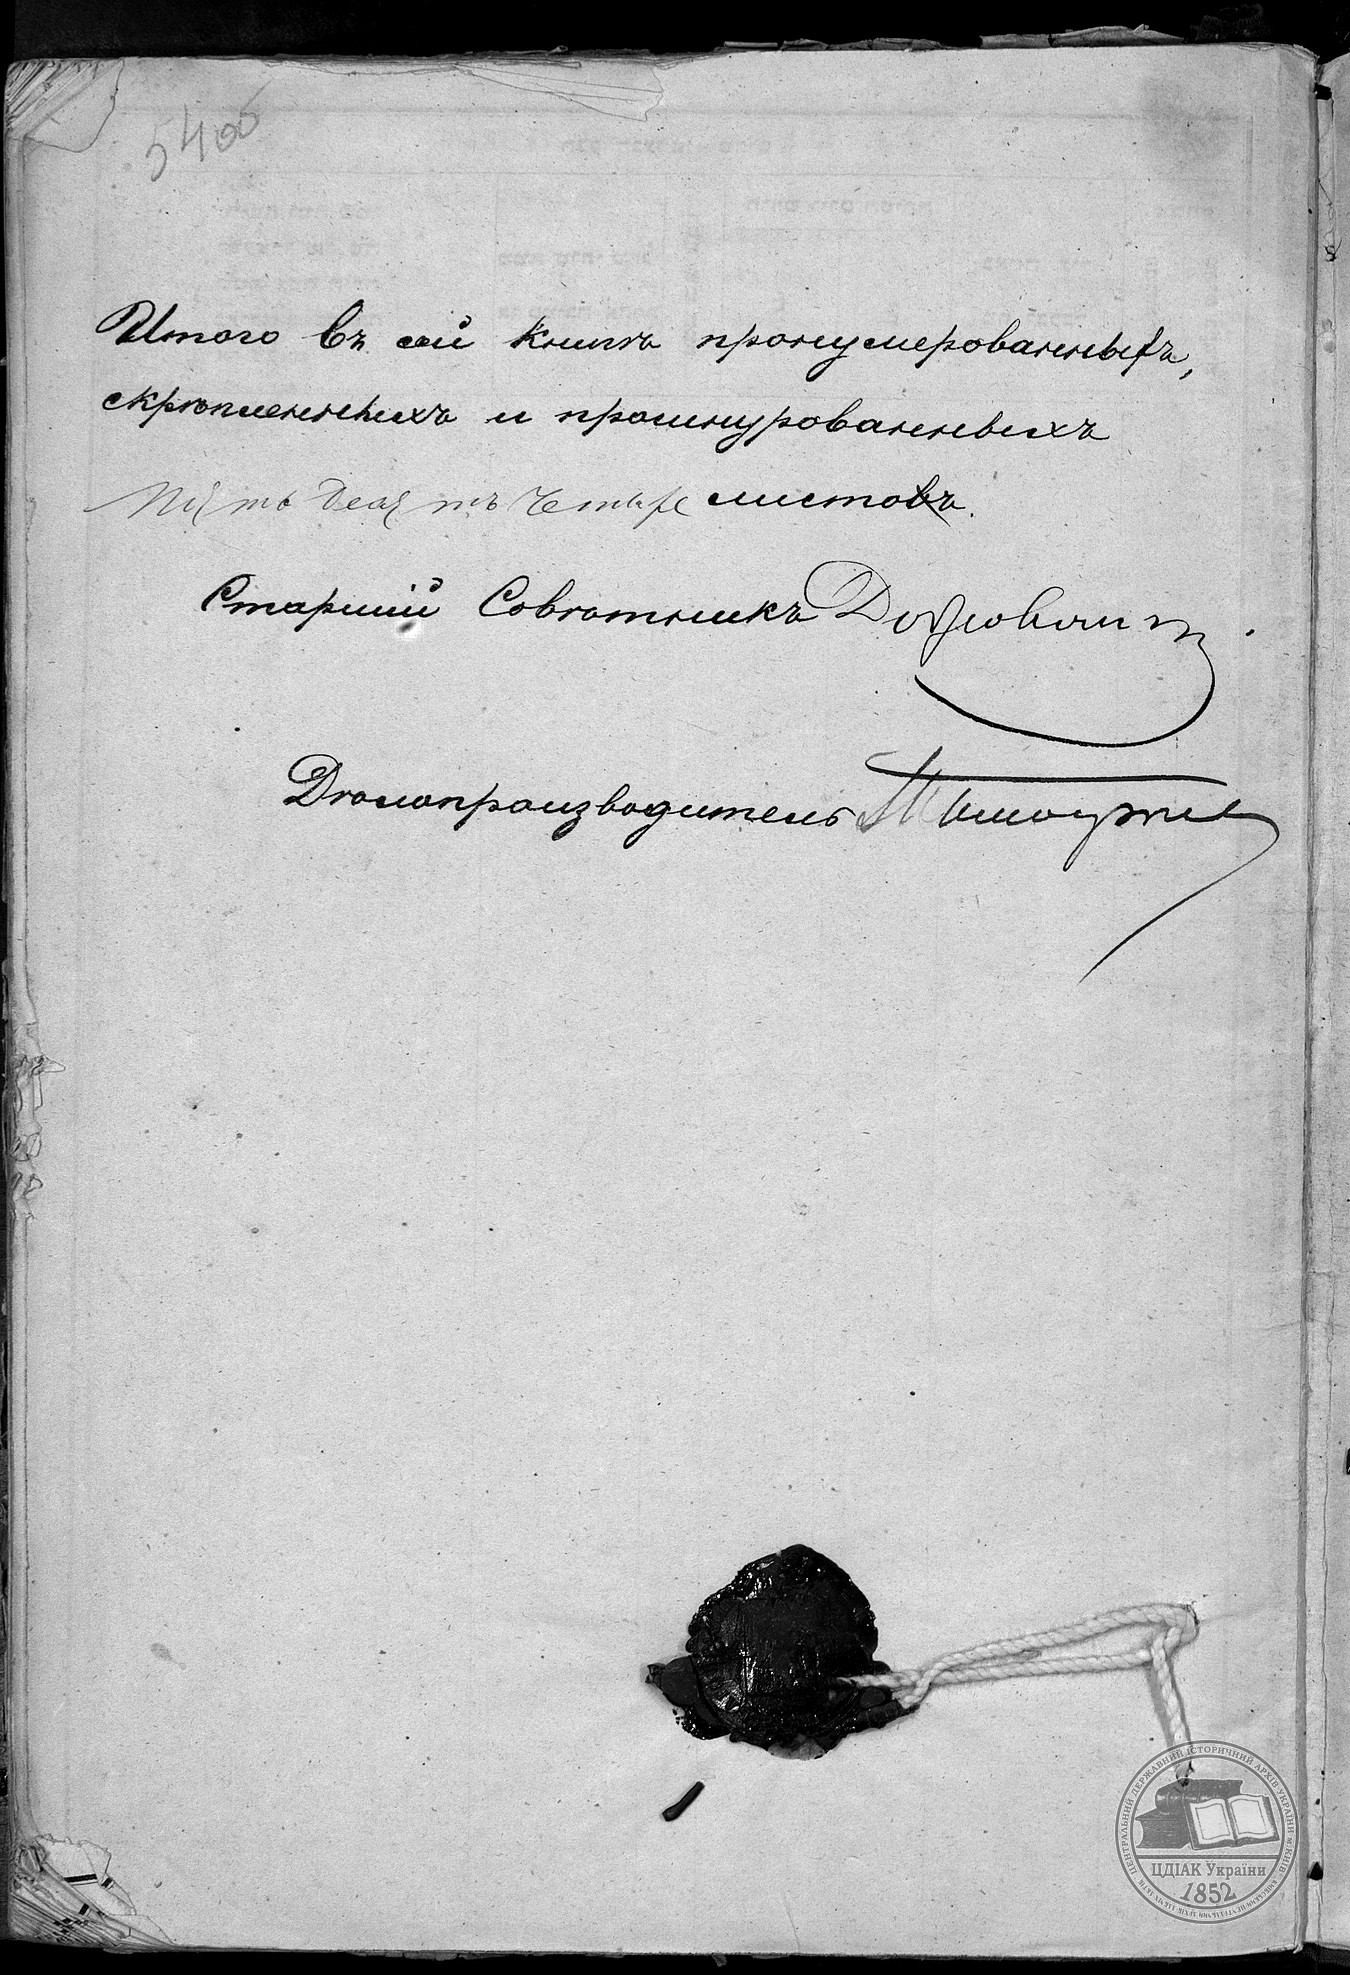 54 об
Итого въ сей книгѣ пронумерованныхъ,
скрѣпленныхъ и прошнурованныхъ
Пятьдесятъ четыре листовъ.
Старшій Совѣтникъ
Дѣлопроизводитель
ЦЕНТРАЛЬНИЙ ДЕРЖАВНИЙ ІСТОРИЧНИЙ АРХІВ УКРАЇНИ М. КИЇВ
ЦДІАК України
1852